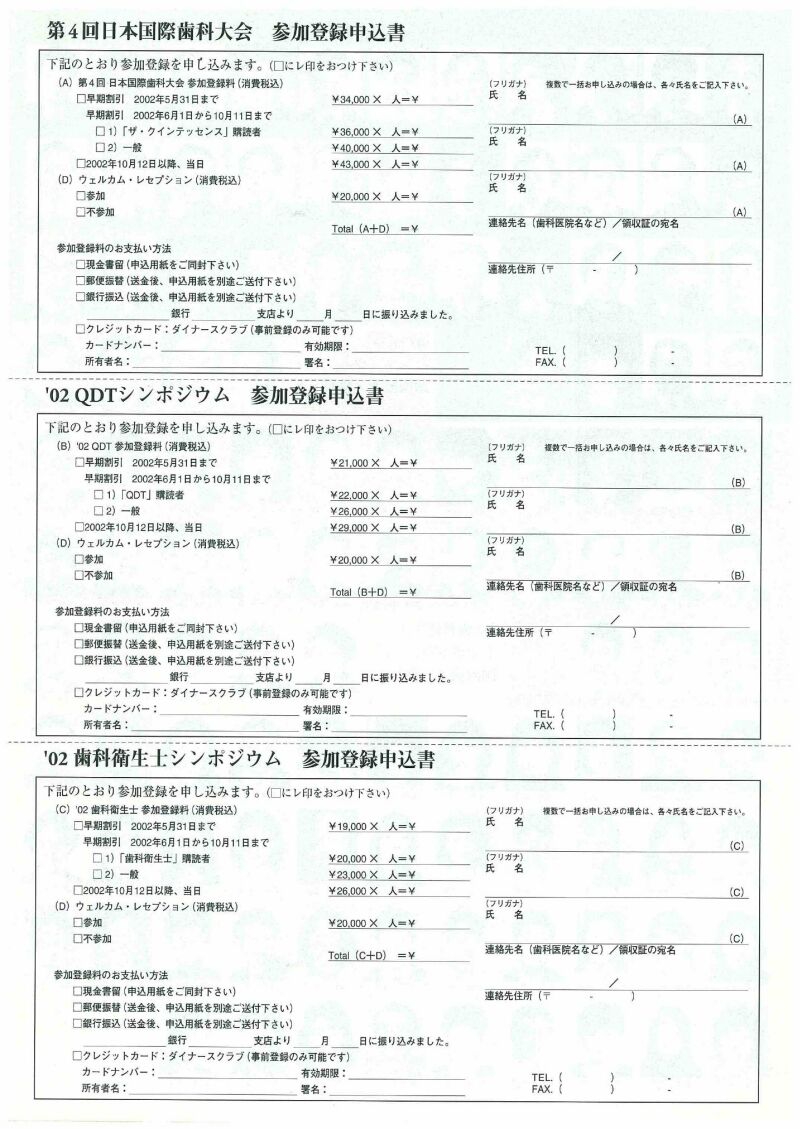 第4回日本国際歯科大会　参加登録申込書
下記のとおり参加登録を申し込みます。(□にレ印をおつけ下さい)
(A) 第4回 日本国際歯科大会 参加登録料(消費税込)
□早期割引　2002年5月31日まで　¥34,000×　人=¥
早期割引　2002年6月1日から10月11日まで
□1)「ザ・クインテッセンス」購読者　¥36,000×　人=¥
□2) 一般　¥40,000×　人=¥
□2002年10月12日以降、当日　¥43,000×　人=¥
(D) ウェルカム・レセプション(消費税込)
□参加　¥20,000×　人=¥
□不参加
Total (A+D)　=¥
参加登録料のお支払い方法
□現金書留(申込用紙をご同封下さい)
□郵便振替(送金後、申込用紙を別途ご送付下さい)
□銀行振込(送金後、申込用紙を別途ご送付下さい)
銀行　支店より　月　日に振り込みました。
□クレジットカード:ダイナースクラブ(事前登録のみ可能です)
カードナンバー:　有効期限:
所有者名:　署名:
(フリガナ)　複数で一括お申し込みの場合は、各々氏名をご記入下さい。
氏　名
(A)
(フリガナ)
氏　名
(A)
(フリガナ)
氏　名
(A)
連絡先名(歯科医院名など)/領収証の宛名
/
連絡先住所(〒　-　)
TEL. (　)　-
FAX. (　)　-
'02 QDTシンポジウム　参加登録申込書
下記のとおり参加登録を申し込みます。(□にレ印をおつけ下さい)
(B) '02 QDT 参加登録料(消費税込)
□早期割引　2002年5月31日まで　¥21,000×　人=¥
早期割引　2002年6月1日から10月11日まで
□1)「QDT」購読者　¥22,000×　人=¥
□2) 一般　¥26,000×　人=¥
□2002年10月12日以降、当日　¥29,000×　人=¥
(D) ウェルカム・レセプション(消費税込)
□参加　¥20,000×　人=¥
□不参加
Total (B+D)　=¥
参加登録料のお支払い方法
□現金書留(申込用紙をご同封下さい)
□郵便振替(送金後、申込用紙を別途ご送付下さい)
□銀行振込(送金後、申込用紙を別途ご送付下さい)
銀行　支店より　月　日に振り込みました。
□クレジットカード:ダイナースクラブ(事前登録のみ可能です)
カードナンバー:　有効期限:
所有者名:　署名:
(フリガナ)　複数で一括お申し込みの場合は、各々氏名をご記入下さい。
氏　名
(B)
(フリガナ)
氏　名
(B)
(フリガナ)
氏　名
(B)
連絡先名(歯科医院名など)/領収証の宛名
/
連絡先住所(〒　-　)
TEL. (　)　-
FAX. (　)　-
'02 歯科衛生士シンポジウム　参加登録申込書
下記のとおり参加登録を申し込みます。(□にレ印をおつけ下さい)
(C) '02 歯科衛生士 参加登録料(消費税込)
□早期割引　2002年5月31日まで　¥19,000×　人=¥
早期割引　2002年6月1日から10月11日まで
□1)「歯科衛生士」購読者　¥20,000×　人=¥
□2) 一般　¥23,000×　人=¥
□2002年10月12日以降、当日　¥26,000×　人=¥
(D) ウェルカム・レセプション(消費税込)
□参加　¥20,000×　人=¥
□不参加
Total (C+D)　=¥
参加登録料のお支払い方法
□現金書留(申込用紙をご同封下さい)
□郵便振替(送金後、申込用紙を別途ご送付下さい)
□銀行振込(送金後、申込用紙を別途ご送付下さい)
銀行　支店より　月　日に振り込みました。
□クレジットカード:ダイナースクラブ(事前登録のみ可能です)
カードナンバー:　有効期限:
所有者名:　署名:
(フリガナ)　複数で一括お申し込みの場合は、各々氏名をご記入下さい。
氏　名
(C)
(フリガナ)
氏　名
(C)
(フリガナ)
氏　名
(C)
連絡先名(歯科医院名など)/領収証の宛名
/
連絡先住所(〒　-　)
TEL. (　)　-
FAX. (　)　-